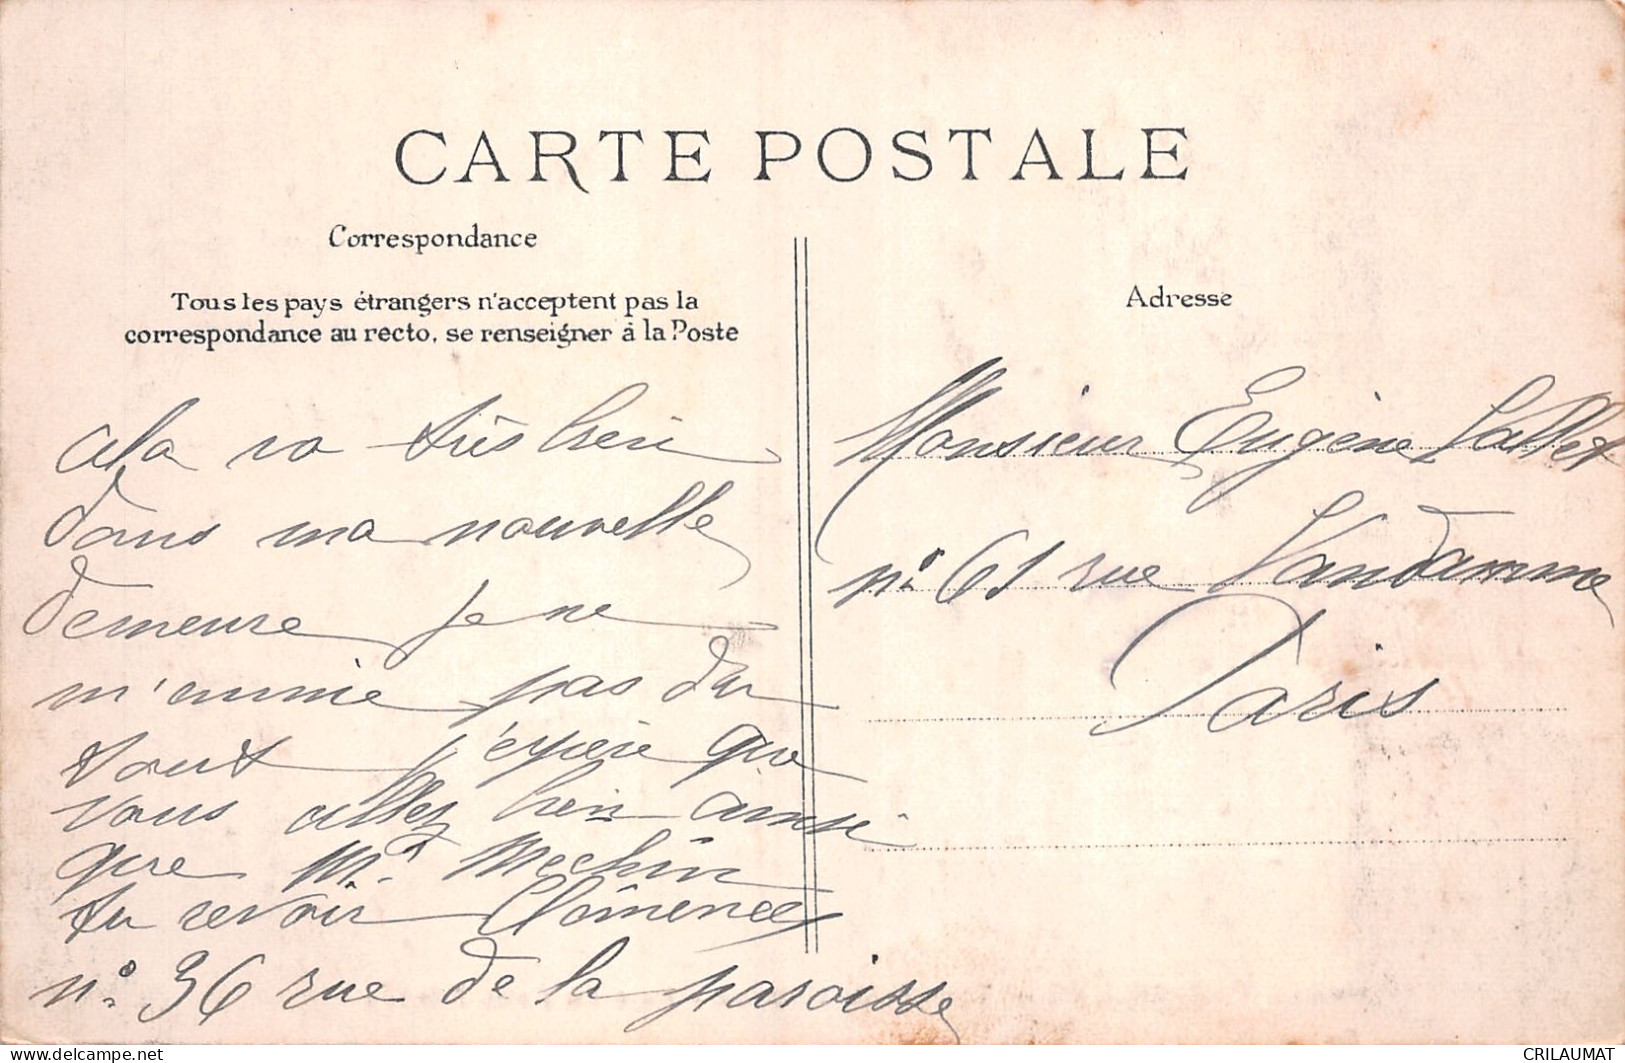 CARTE POSTALE
Correspondance
Tous les pays étrangers n'acceptent pas la
correspondance au recto, se renseigner à la Poste
cela va très bien
dans ma nouvelle
demeure je ne
m'ennuie pas du
tout j'espère que
vous allez bien ainsi
que Mr Mechin
Au revoir
n° 36 rue de la paroisse
Adresse
Monsieur Eugène
n° 61 rue Vandamme
Paris
www.delcampe.net
CRILAUMAT